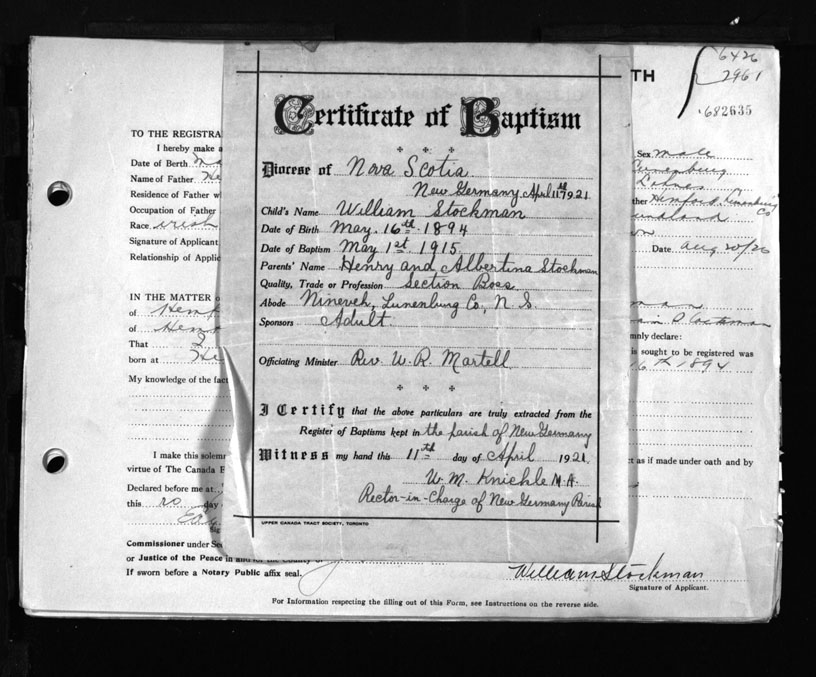 6426
2961
682635
TH
Certificate of Baptism
Diocese of Nova Scotia.
New Germany, April 11th 1921
Child's Name William Stockman
Date of Birth May. 16th 1894
Date of Baptism May 1st 1915
Parents' Name Henry and Albertina Stockman
Quality, Trade or Profession Section Boss
Abode Nineveh, Lunenburg Co, N. S.
Sponsors Adult.
Officiating Minister Rev. W. R. Martell
I Certify that the above particulars are truly extracted from the
Register of Baptisms kept in the parish of New Germany
Witness my hand this 11th day of April 1921
W. M. Knickle M.A.
Rector-in-Charge of New Germany Parish
UPPER CANADA TRACT SOCIETY, TORONTO
TO THE REGISTRA
I hereby make a
Date of Birth
Name of Father
Residence of Father
Occupation of Father
Race Irish
Signature of Applicant
Relationship of Applic
IN THE MATTER
of
of
That
born at
My knowledge of the fact
I make this solemn
virtue of The Canada E
Declared before me at
this 20 day
Commissioner under Se
or Justice of the Peace in and for the County of
If sworn before a Notary Public affix seal.
Sex male
Lunenburg
ther Hemford Lunenburg Co
Date Aug 20/26
mnly declare:
is sought to be registered was
16th 1894
ct as if made under oath and by
William Stockman
Signature of Applicant.
For Information respecting the filling out of this Form, see Instructions on the reverse side.